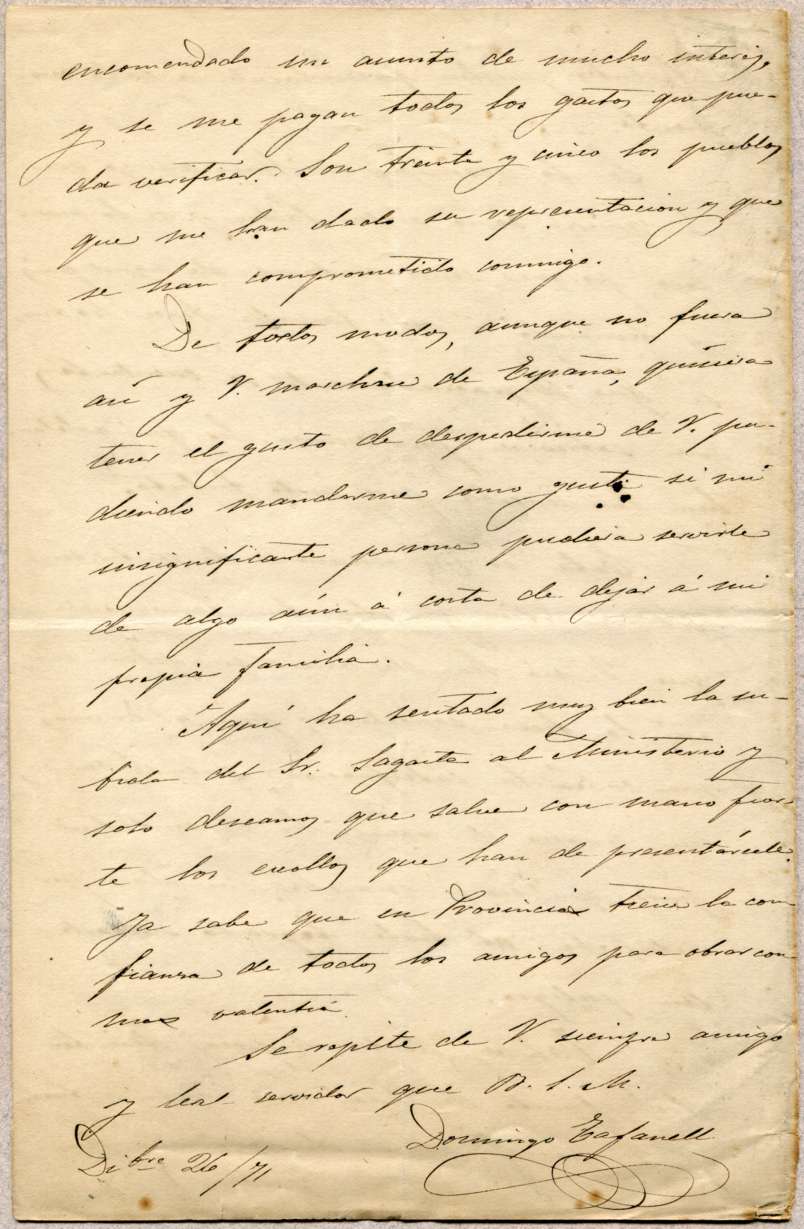 encomendado un asunto de mucho interes,
y se me pagan todos los gastos que pue-
da verificar. Son treinta y cinco los pueblos
que me han dado su representacion y que
se han comprometido conmigo.
De todos modos, aunque no fuera
asi y V. marchase de España, quisiera
tener el gusto de despedirme de V. pu-
diendo mandarme como guste si mi
insignificante persona pudiera servirle
de algo aún á costa de dejar á mi
propia familia.
Aqui ha sentado muy bien la su-
bida del Sr. Sagasta al Ministerio y
solo deseamos que salve con mano fuer-
te los escollos que han de presentársele.
Ya sabe que en Provincias tiene la con-
fianza de todos los amigos para obrar con
mas valentia.
Se repite de V. siempre amigo
y leal servidor que B. S. M.
Domingo Tafanell
Dibre 26/71